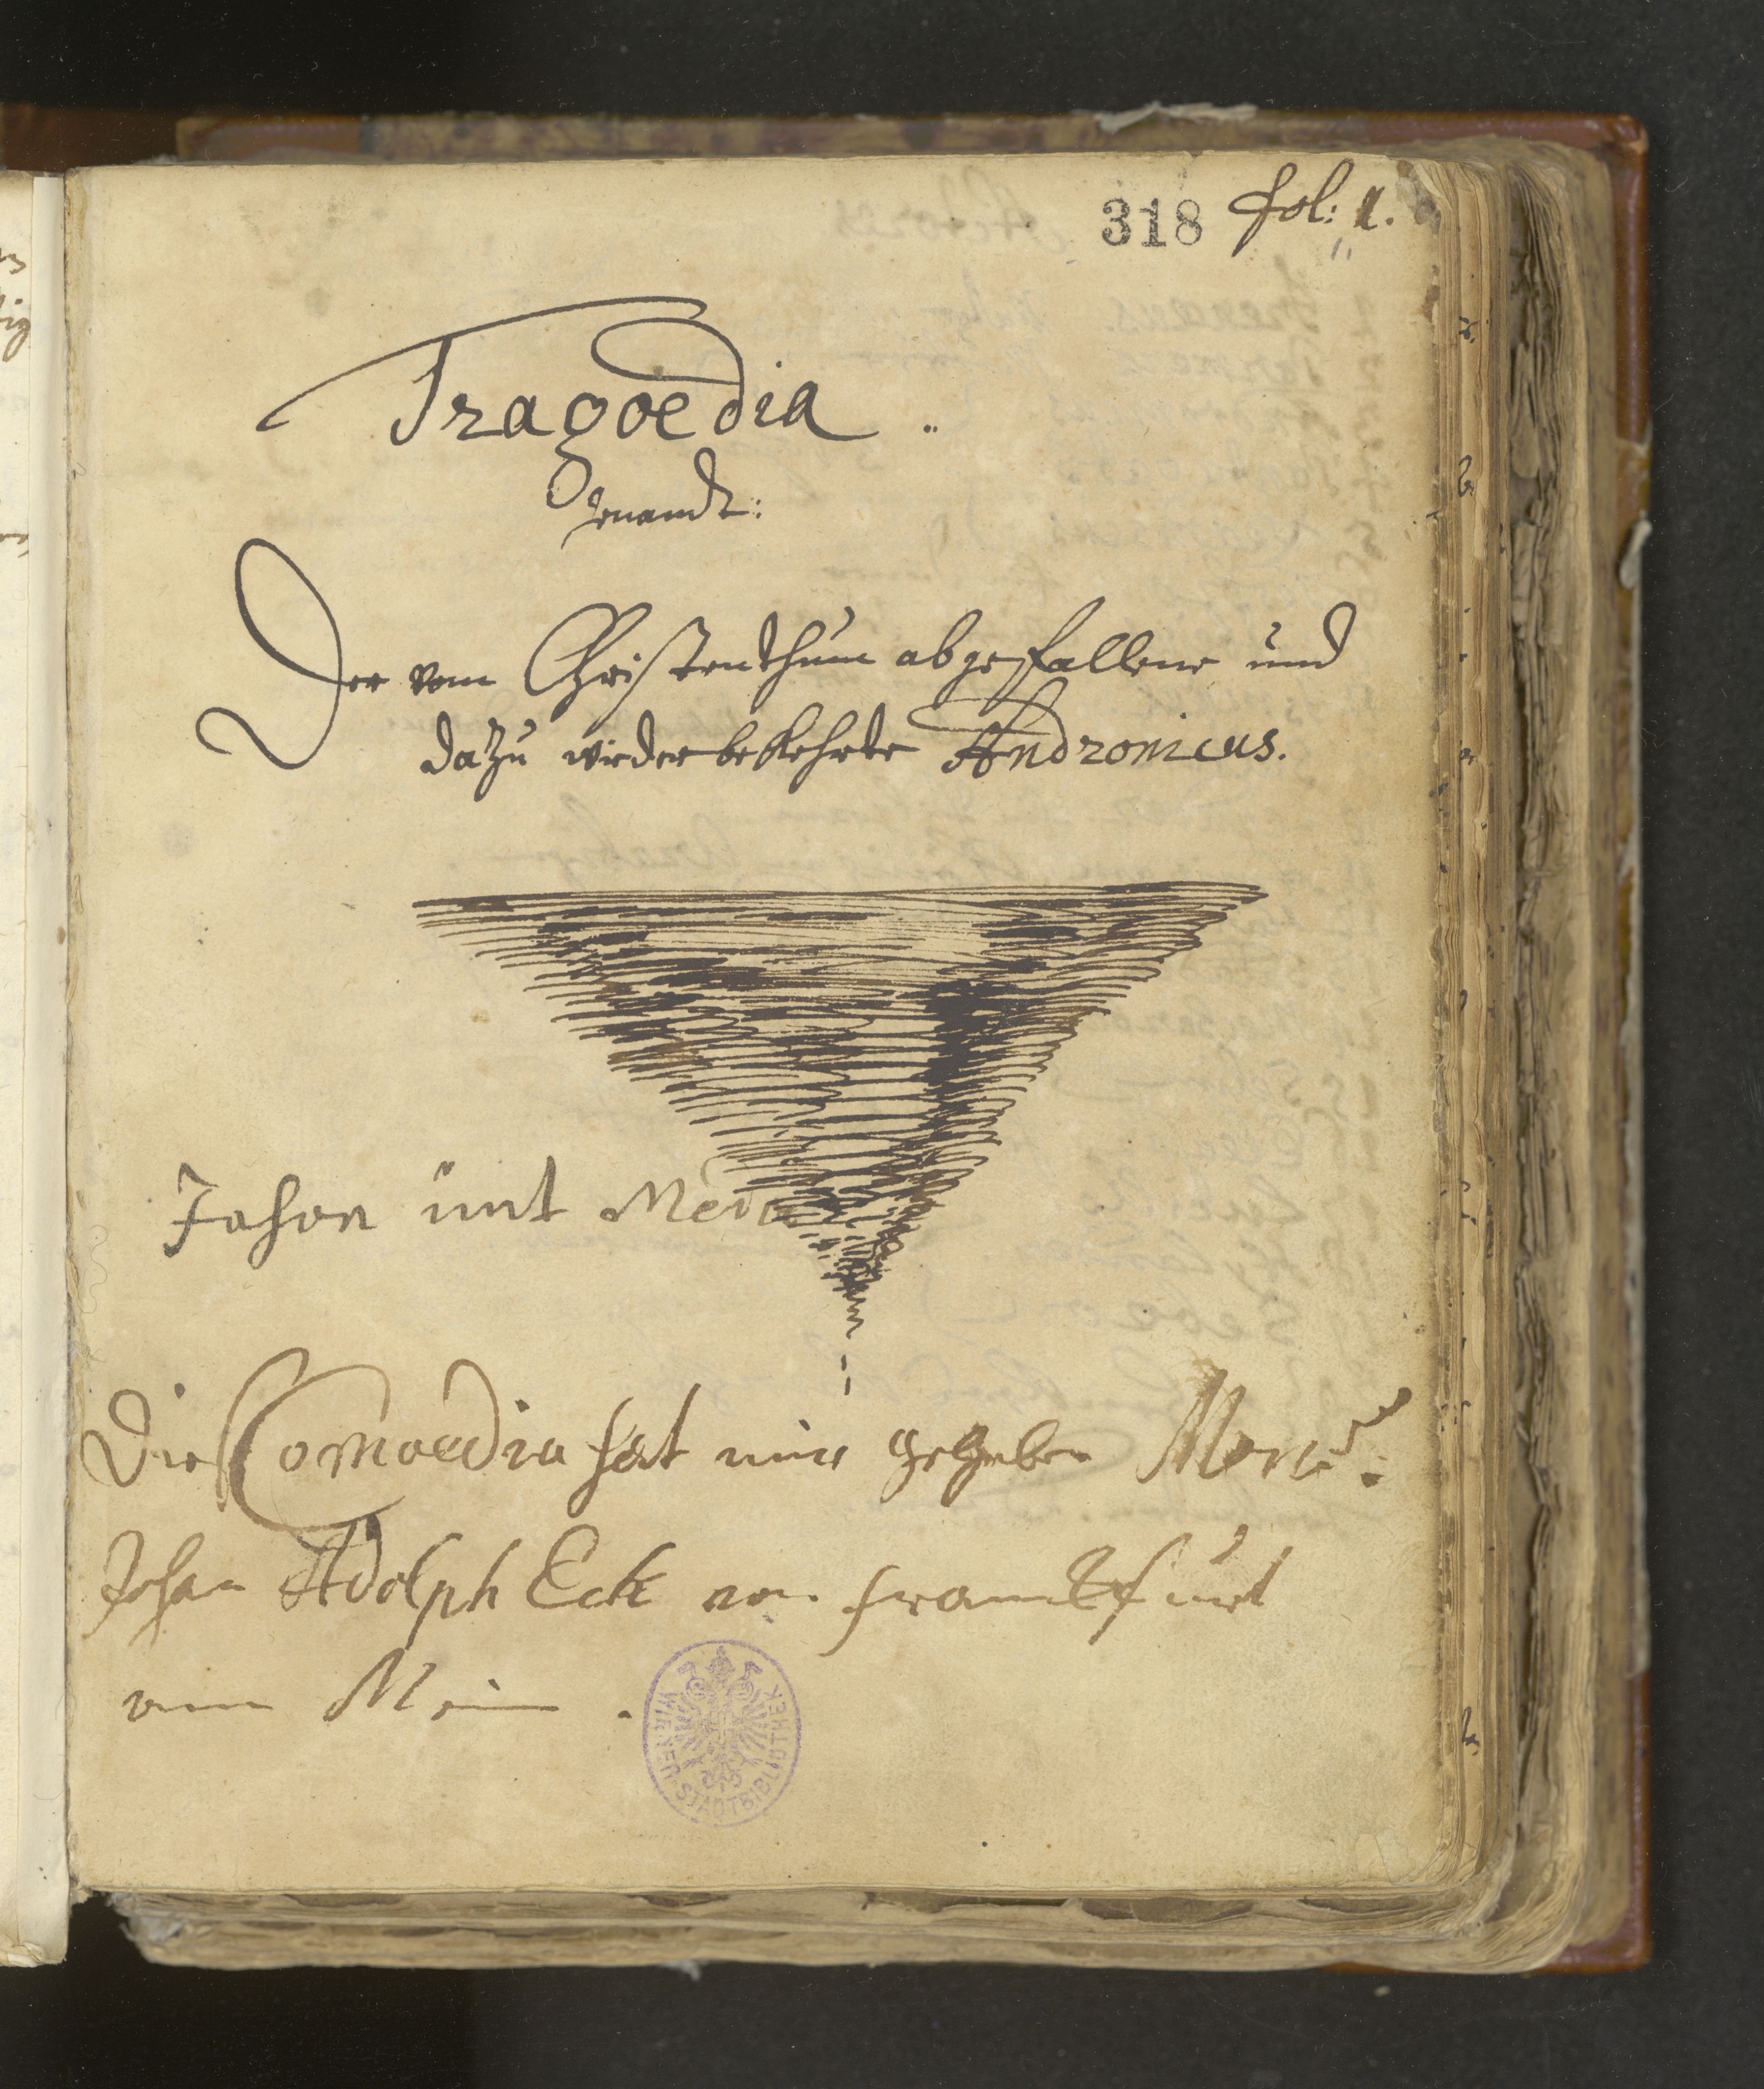 318 fol: 1.
Tragoedia
genandt:
Der vom Christenthum abgefallene und
dazu wiederbekehrte Andronicus.
Jason unt Mede
Die Comoedia hat mir gegeben Mons:
Johan Adolph Eck von franckfurt
am Mein.
WIENER STADTBIBLIOTHEK